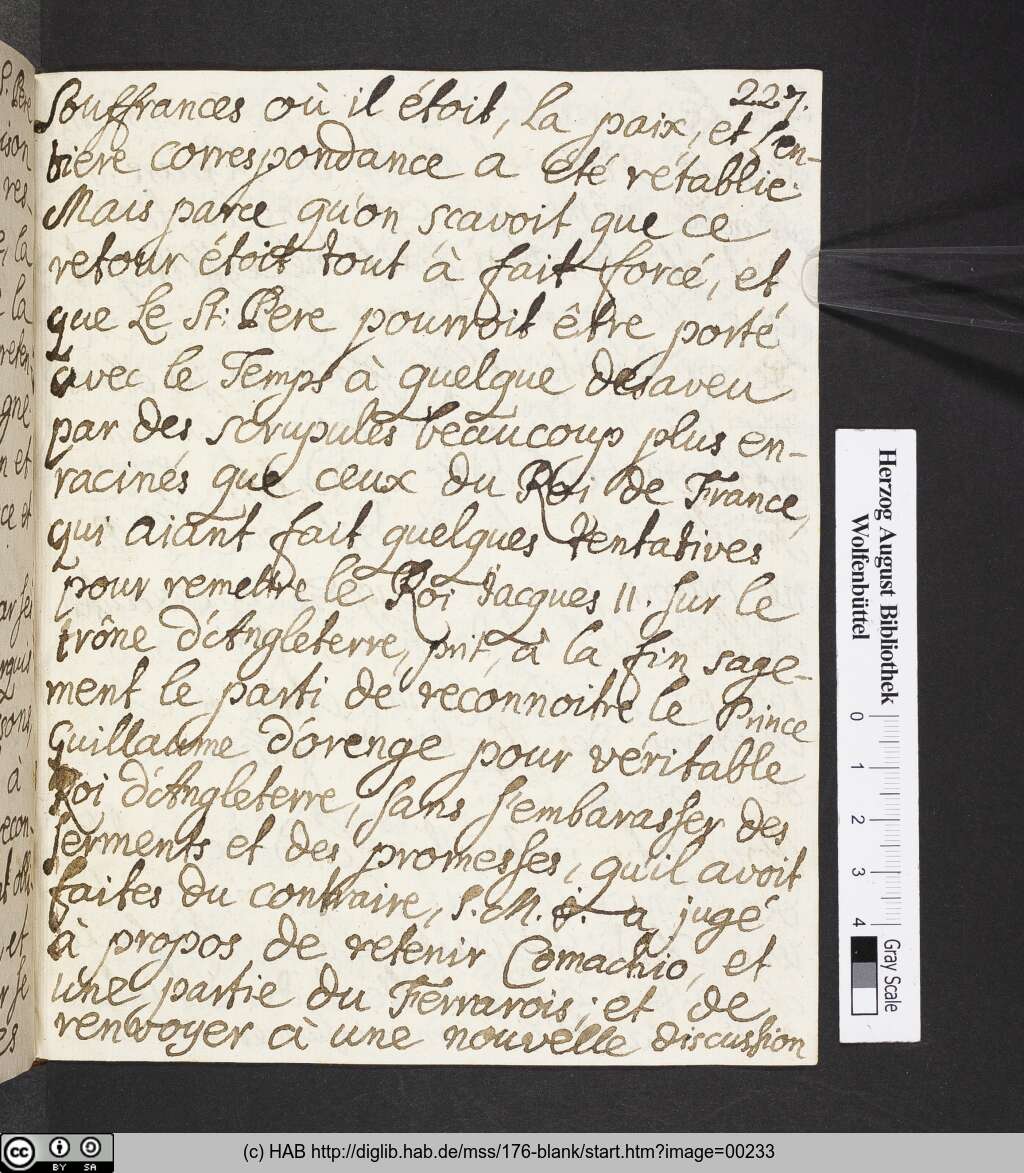 227.
Souffrances où il étoit, la paix, et l'en-
tiere correspondance a été rétablie.
Mais parce qu'on scavoit que ce
retour étoit tout à fait forcé, et
que le St: Pere pourroit être porté
avec le Temps à quelque desaveu
par des scrupules beaucoup plus en-
racinés que ceux du Roi de France,
qui aiant fait quelques tentatives
pour remettre le Roi Jacques II. sur le
trône d'Angleterre, prit, à la fin sage-
ment le parti de reconnoitre le Prince
Guillaume d'orenge pour véritable
Roi d'Angleterre, sans s'embarasser des
serments et des promesses, qu'il avoit
faites du contraire, S. M. J. a jugé
à propos de retenir Comachio, et
une partie du Ferrarois; et de
renvoyer à une nouvelle discussion
Herzog August Bibliothek
Wolfenbüttel
0 1 2 3 4
Gray Scale
cc BY SA
(c) HAB http://diglib.hab.de/mss/176-blank/start.htm?image=00233